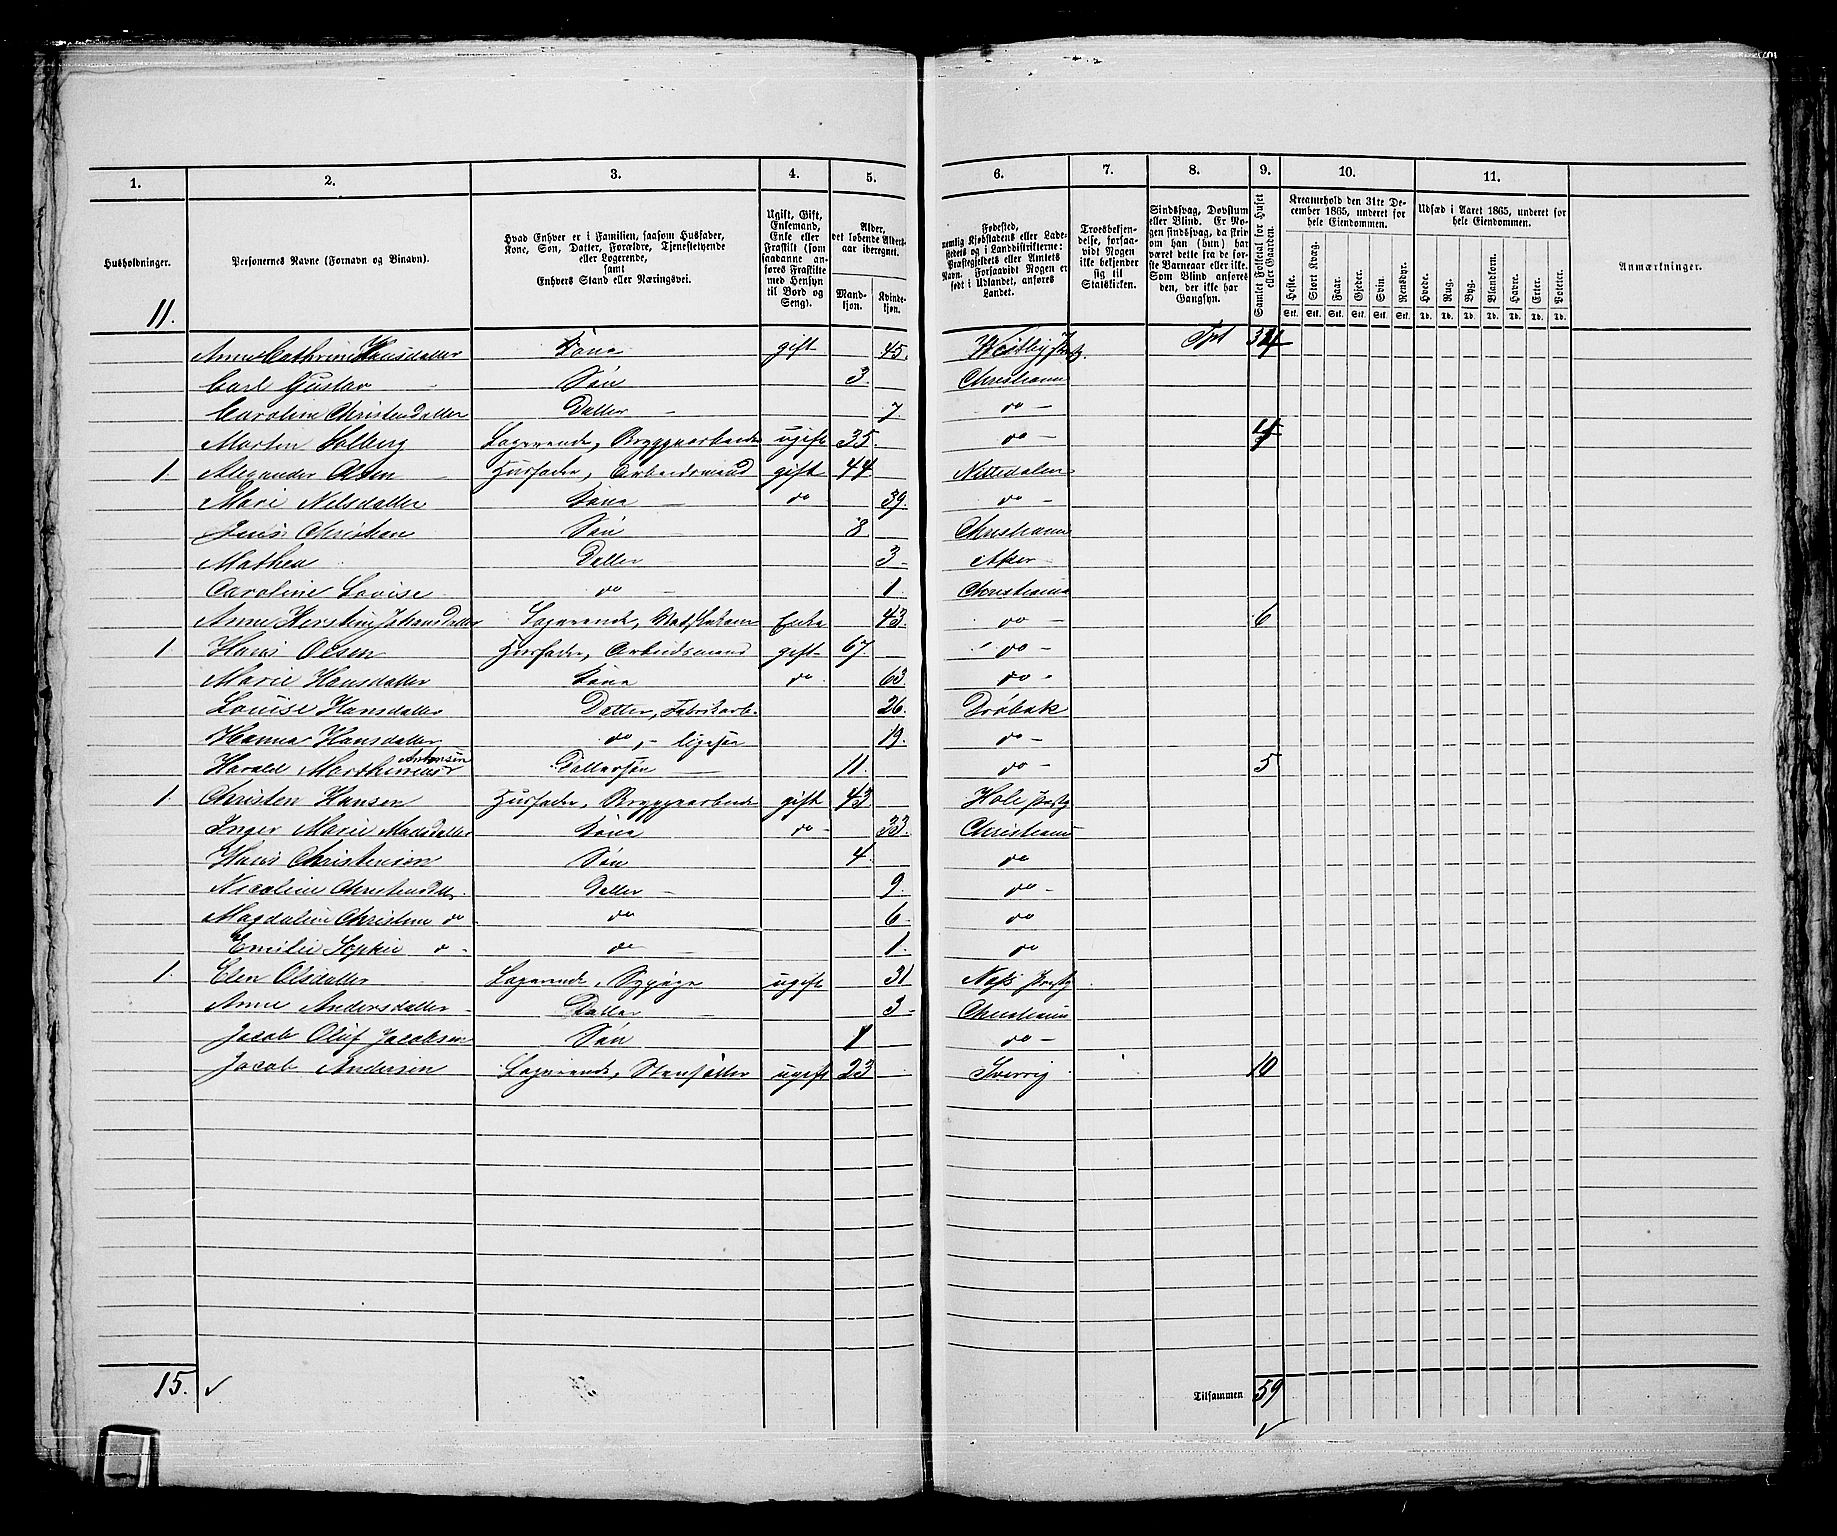 1. 2. 3. 4. 5. 6. 7. 8. 9. 10. 11.
Husholdninger.
Personernes Navne (Fornavn og Binavn).
Hvad Enhver er i Familien, saasom Husfader, Kone, Søn, Datter, Forældre, Tjenestetyende eller Logerende, samt Enhvers Stand eller Næringsvei.
Ugift, Gift, Enkemand, Enke eller Fraskilt (som saadanne anføres Fraskilte med Hensyn til Bord og Seng).
Alder, det løbende Aldersaar iberegnet.
Mandkjøn. Kvindekjøn.
Fødested, nemlig Kjøbstadens eller Ladestedets og i Landdistrikterne: Præstegjeldets eller Amtets Navn. Forsaavidt Nogen er født i Udlandet, anføres Landet.
Troesbekjendelse, forsaavidt Nogen ikke bekjender sig til Statskirken.
Sindssvag, Døvstum eller Blind. Er Nogen sindssvag, da skrives om han (hun) har været dette fra de første Barneaar eller ikke. Som Blind anføres den, der ikke har Gangsyn.
Samlet Folketal for Huset eller Gaarden.
Kreaturhold den 31te December 1865, underet for hele Eiendommen.
Heste. Stort Kvæg. Faar. Gjeder. Svin. Rensdyr.
Stk. Stk. Stk. Stk. Stk. Stk.
Udsæd i Aaret 1865, underet for hele Eiendommen.
Hvede. Rug. Byg. Blandkorn. Havre. Erter. Poteter.
Td. Td. Td. Td. Td. Td. Td.
Anmærkninger.
11.
Anne Cathrine Hansdatter Kone gift 45. Westby Præstg Tpt 34
Carl Gustav Søn 3. Christiania
Caroline Christensdatter Datter 7 do
Morten Solberg Logerende, Bryggearbeider ugift 35 do 15
1. Alexander Olsen Husfader, Arbeidsmand gift 44 Nittedalen
Mari Nilsdatter Kone do 39. do
Jens Christian Søn 8 Christiania
Mathea Datter 3 Aker
Caroline Lovise do 1. Christiania
Anne Kerstine Johansdatter Logerende, Enke 43. do 6
1. Hans Olsen Husfader, Arbeidsmand gift 67. do
Marie Hansdatter Kone do 63 do
Louise Hansdatter Datter, Fabrikarb. 26. Drøbak
Hanna Hansdatter do, ligesaa 19. do
Antonsen
Harald Marthinius Dattersøn 11. do 5
1. Christen Hansen Husfader, Bryggearbeider gift 43 Hole Præstg
Inger Marie Madsdatter Kone do 33. Christiania
Hans Christensen Søn 4. do
Nicoline Christensdatt. Datter 9. do
Magdaline Christine do do 6 do
Emilie Sophie do do 1. do
1. Elen Olsdatter Logerende, Sypige ugift 31 Næs Præstg
Anne Andersdatter Datter 3 Christiania
Jacob Oluf Jacobsen Søn 1 do
Jacob Andersen Logerende, ugift 23 Sverrig 10
15. Tilsammen 59